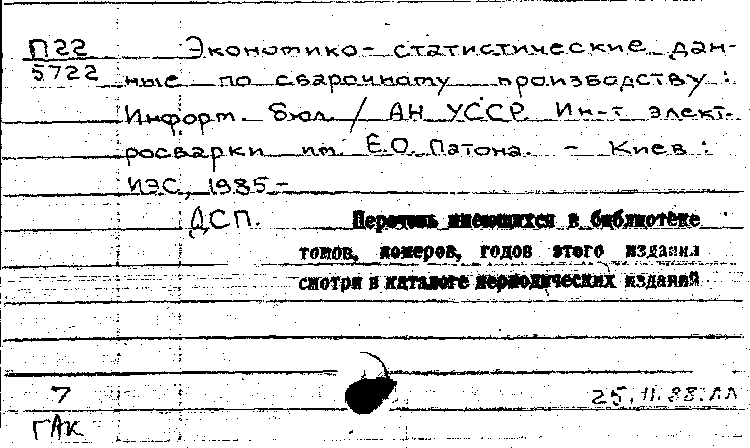 П22
5722
Экономико-статистические дан-
ные по сварочному производству :
Информ. бюл. / АН УССР. Ин-т элект-
росварки им. Е.О. Патона. - Киев :
ИЭС, 1985-
ДСП.
Перечень имеющихся в библиотеке
томов, номеров, годов этого издания
смотри в каталоге периодических изданий
7
25.11.88.лл
ГАК